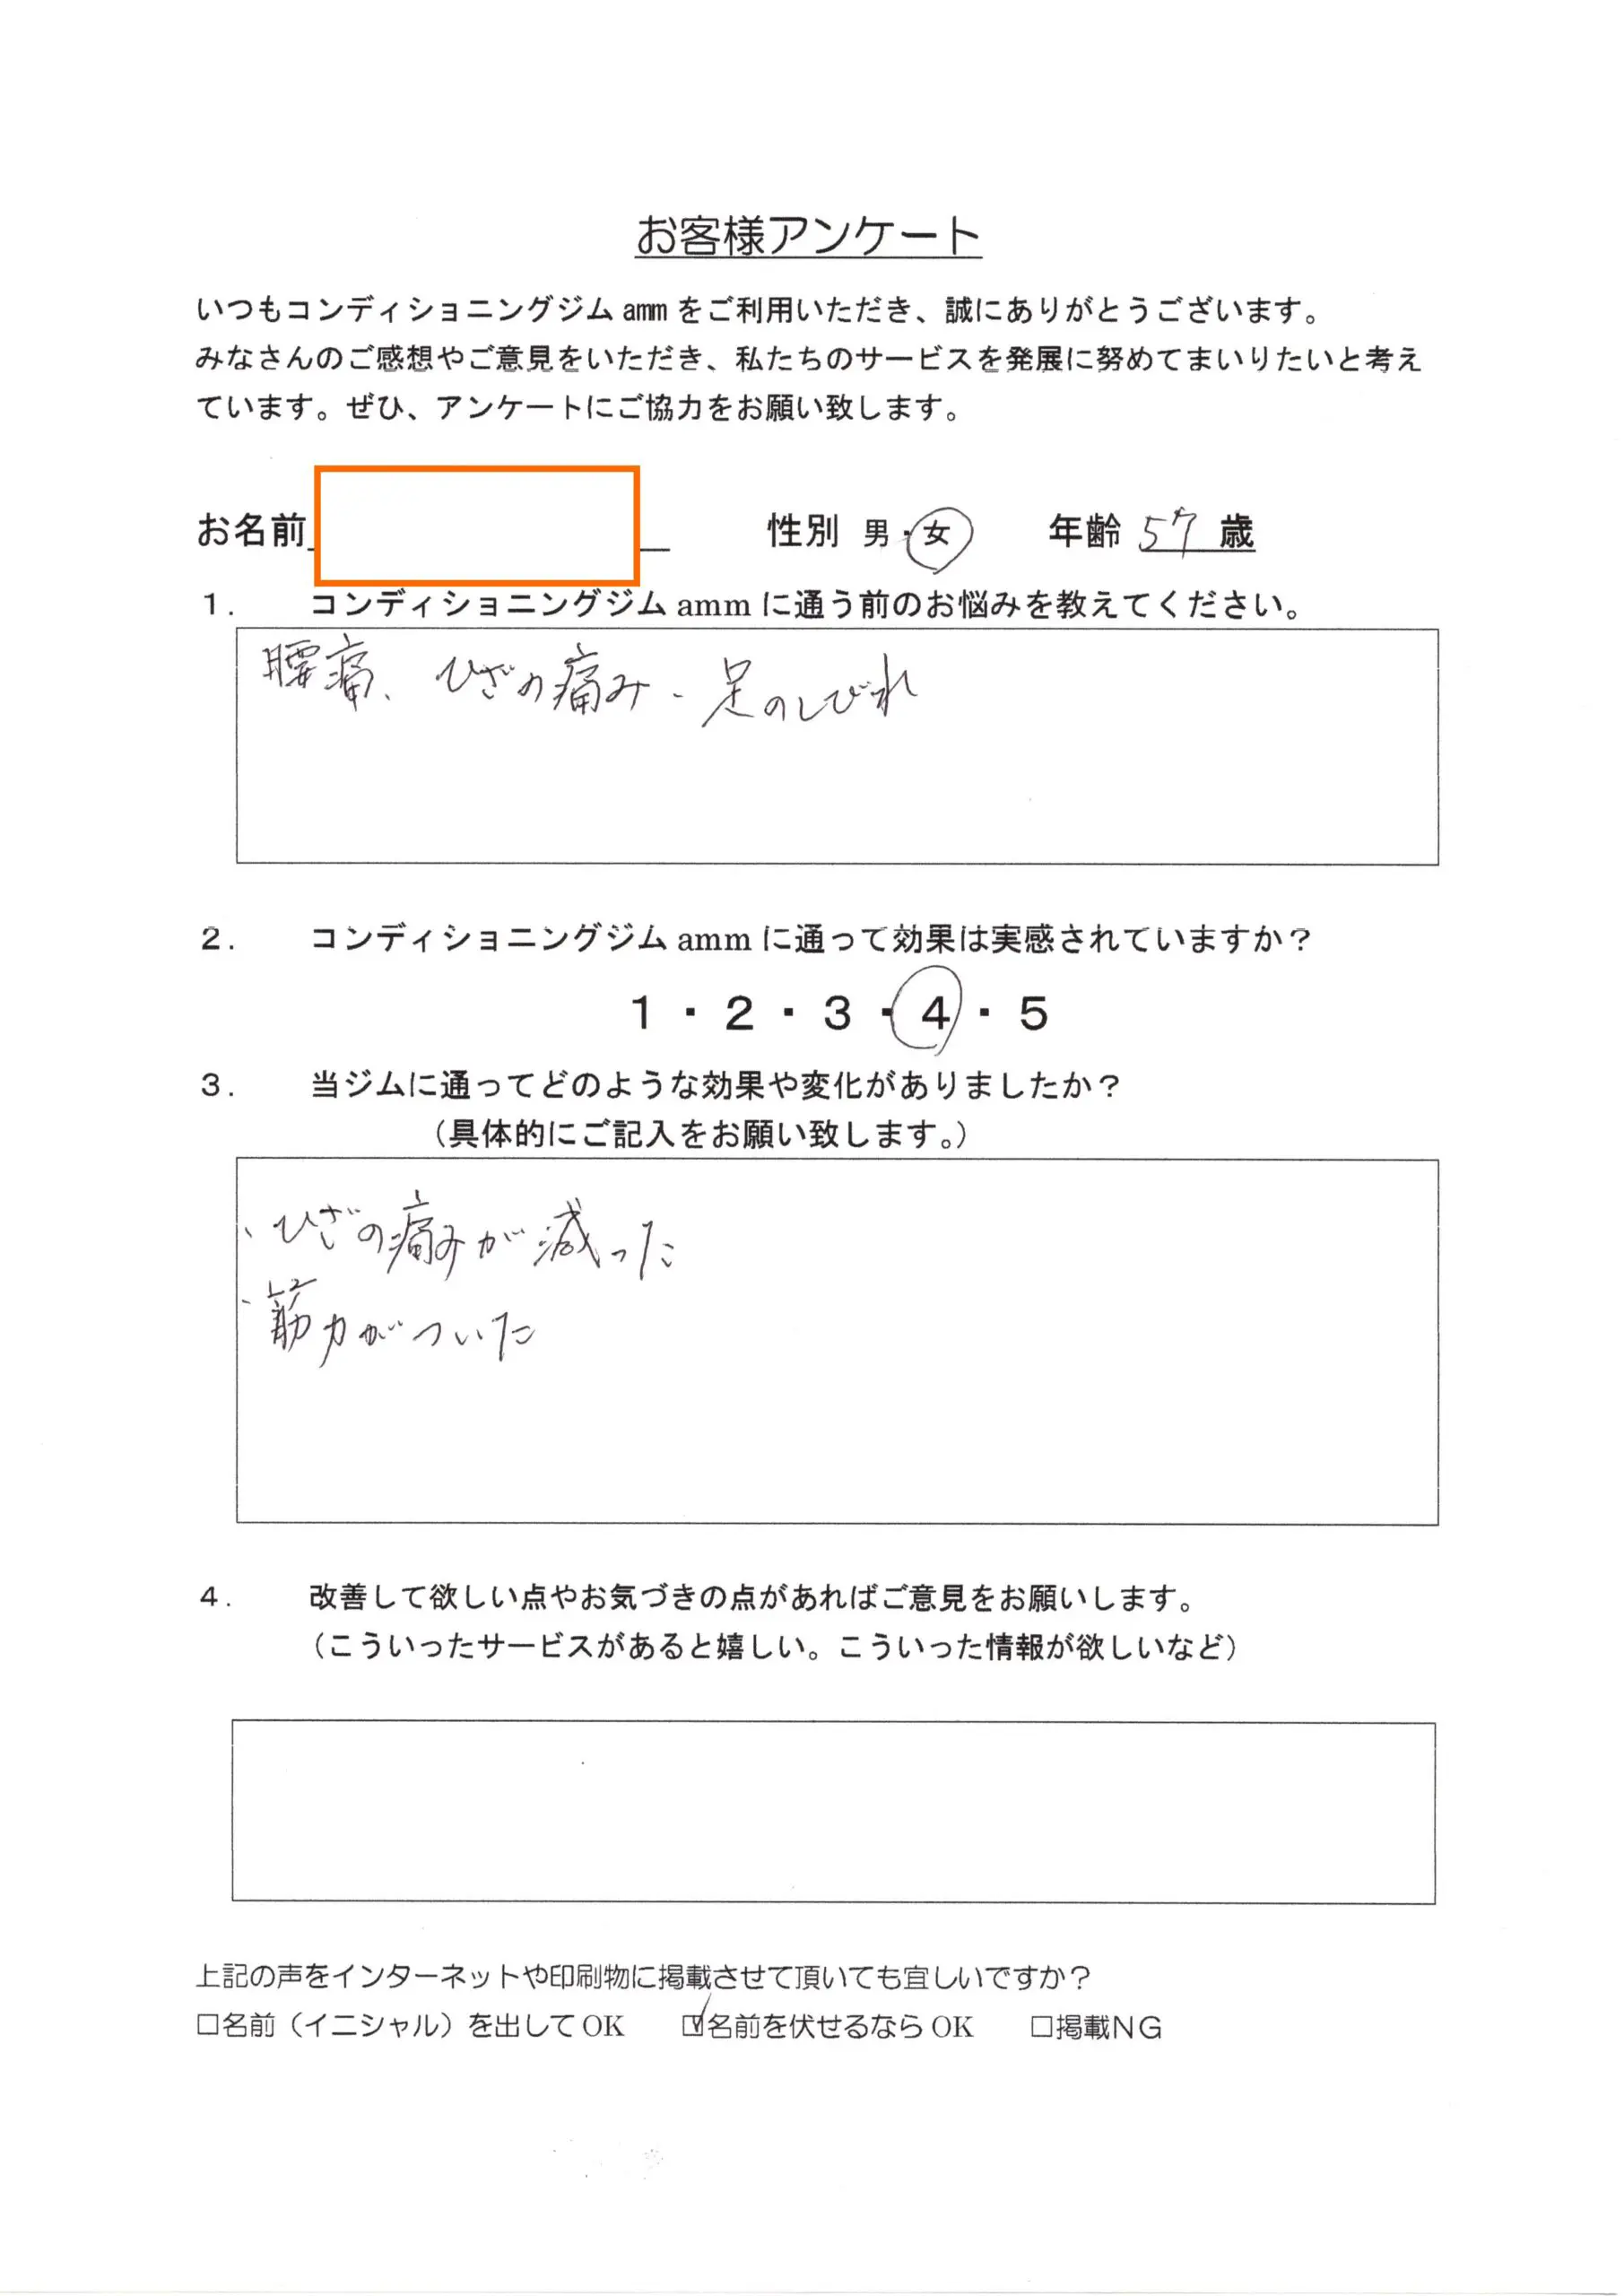 お客様アンケート
いつもコンディショニングジムammをご利用いただき、誠にありがとうございます。
みなさんのご感想やご意見をいただき、私たちのサービスを発展に努めてまいりたいと考え
ています。ぜひ、アンケートにご協力をお願い致します。
お名前 性別 男・女 年齢 57 歳
1. コンディショニングジムammに通う前のお悩みを教えてください。
腰痛、ひざの痛み、足のしびれ
2. コンディショニングジムammに通って効果は実感されていますか？
1・2・3・4・5
3. 当ジムに通ってどのような効果や変化がありましたか？
（具体的にご記入をお願い致します。）
・ひざの痛みが減った
・筋力がついた
4. 改善して欲しい点やお気づきの点があればご意見をお願いします。
（こういったサービスがあると嬉しい。こういった情報が欲しいなど）
上記の声をインターネットや印刷物に掲載させて頂いても宜しいですか？
□名前（イニシャル）を出してOK ☑名前を伏せるならOK □掲載NG